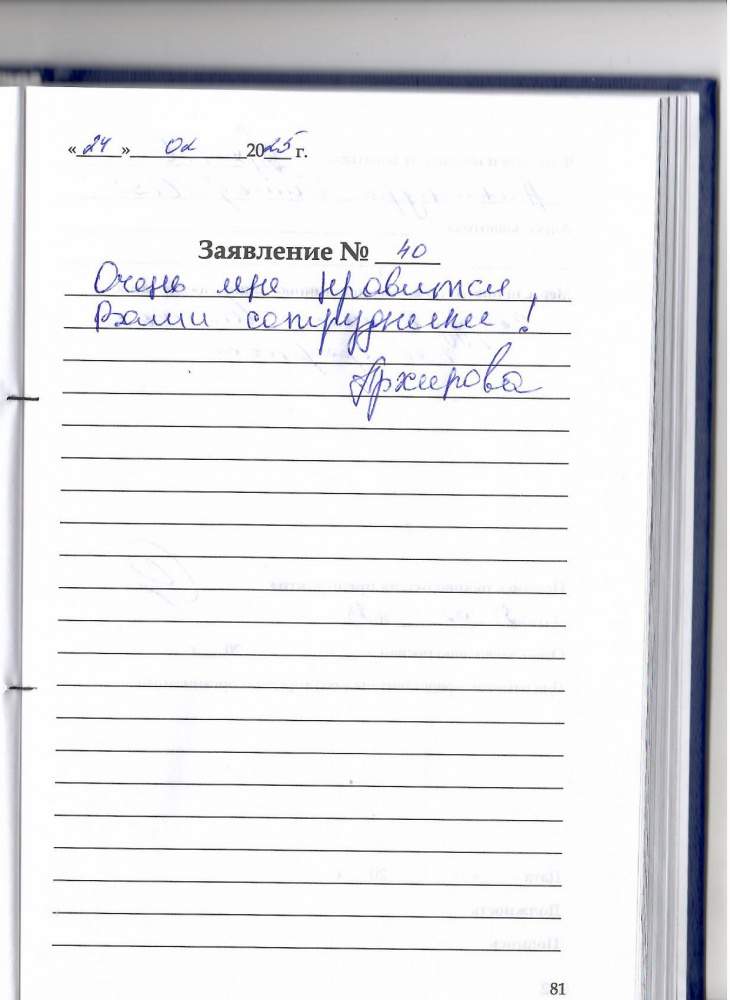 «24» 02 2025 г.
Заявление № 40
Очень мне нравится
Ваши сотрудники!
81